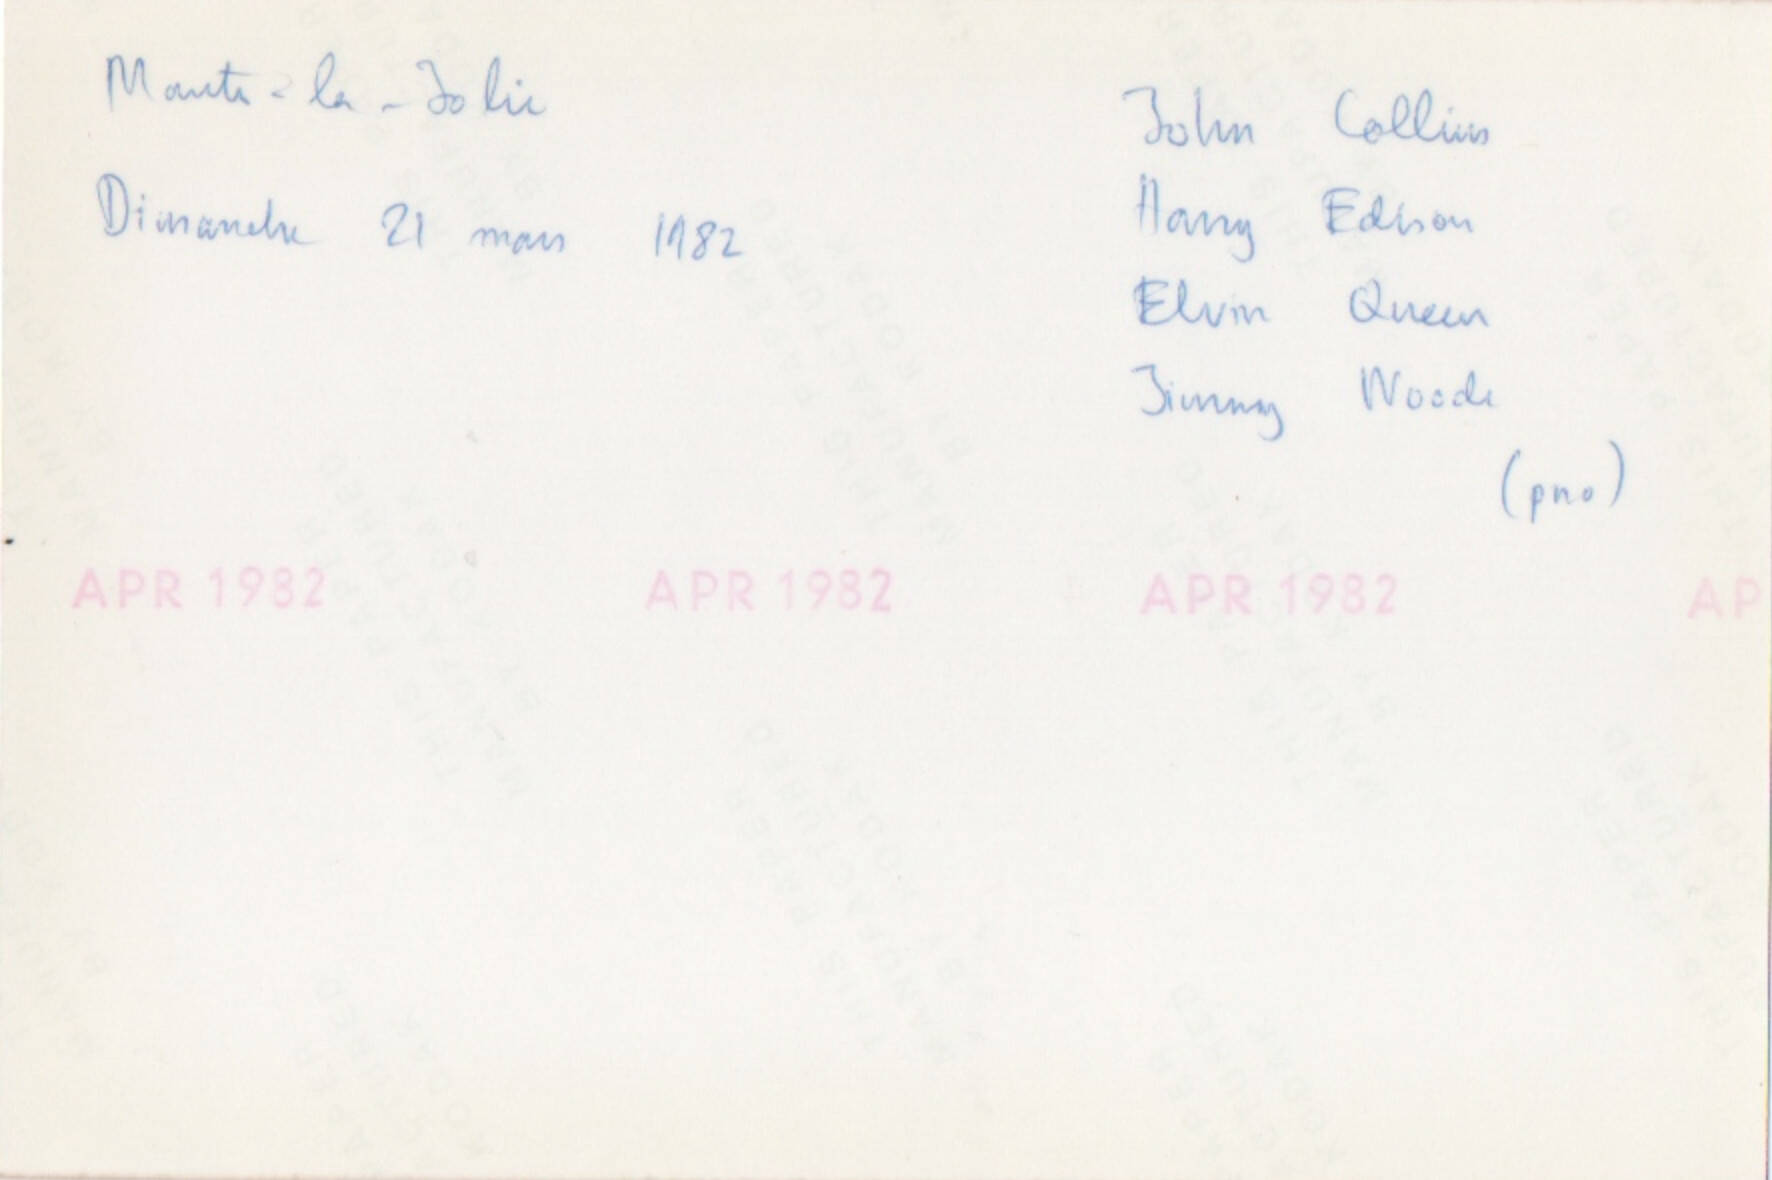 Mante-la-Jolie
Dimanche 21 mars 1982
John Collins
Harry Edison
Elvin Queen
Jimmy Woode
(pno)
APR 1982 APR 1982 APR 1982 AP
THIS PAPER
MANUFACTURED
BY KODAK